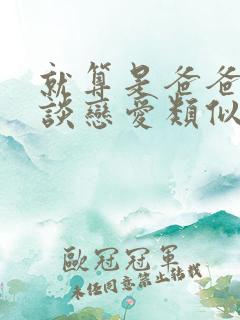 就算是爸爸
談戀愛類似
歐冠冠軍
未任同意禁止轉載